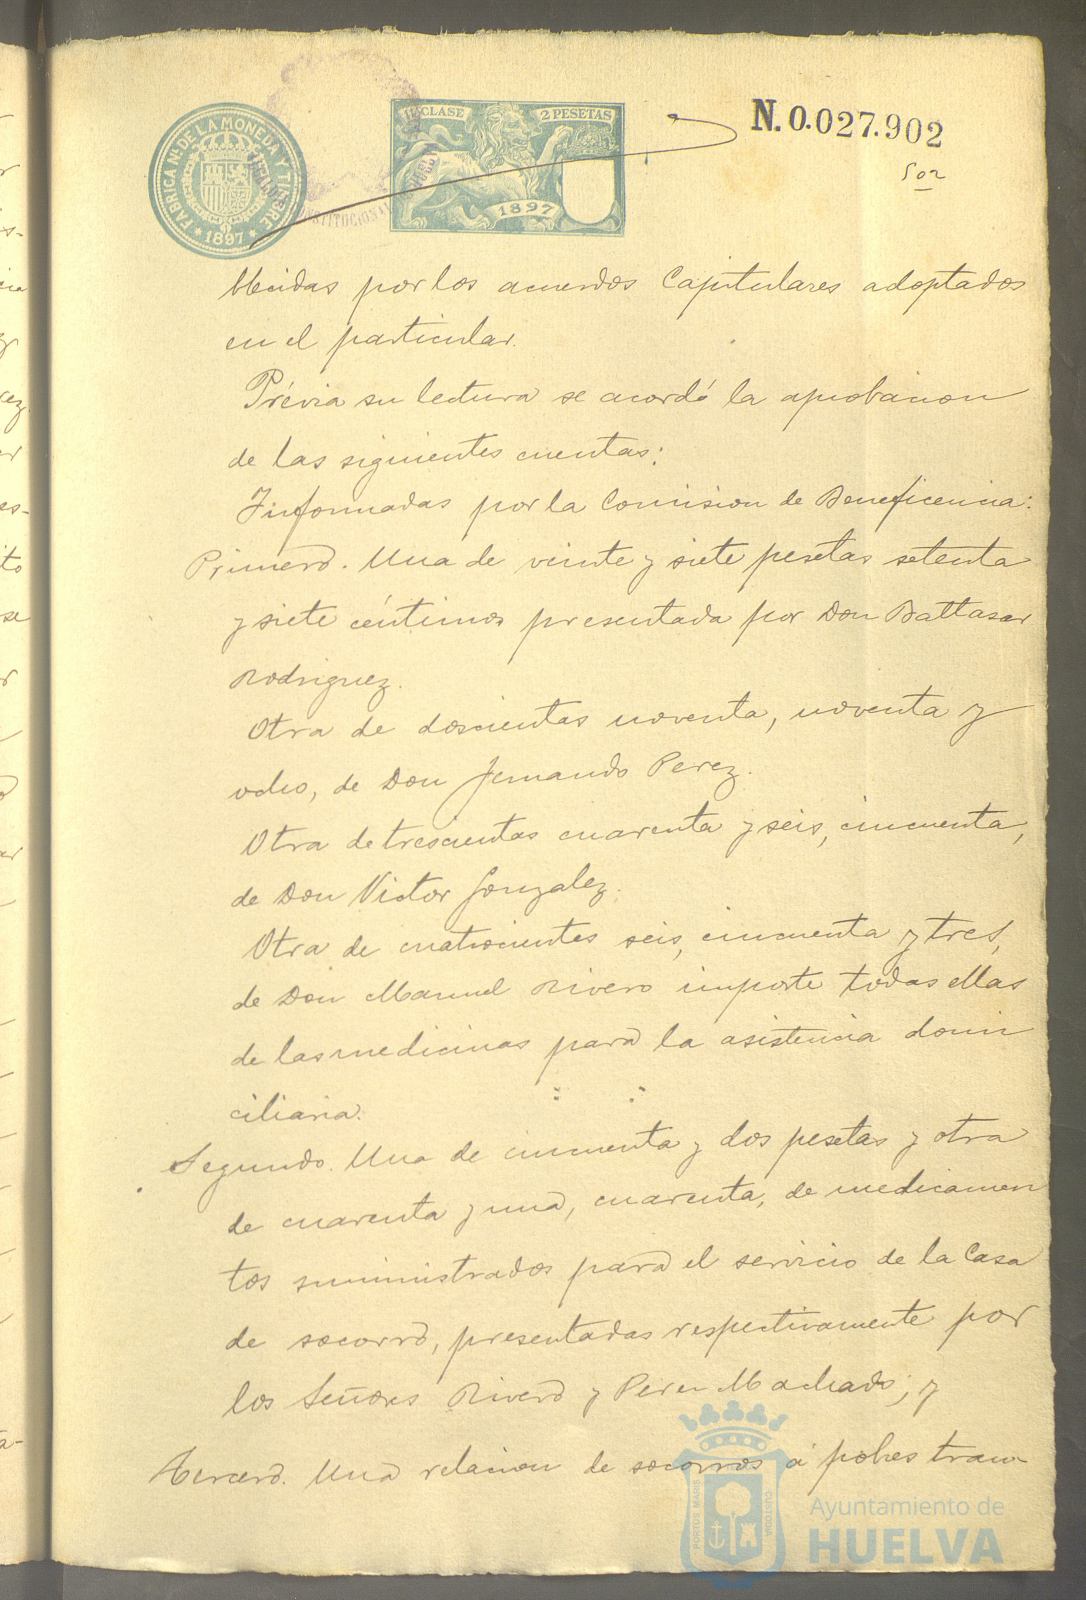 N. 0.027.902
FABRICA Nl. DE LA MONEDA Y TIMBRE
* 1897 *
CLASE 2 PESETAS
1897
CONSTITUCIONAL
blecidas por los acuerdos Capitulares adoptados
en el particular.
Prévia su lectura se acordó la aprobacion
de las siguientes cuentas:
Informadas por la Comision de Beneficencia:
Primero. Una de veinte y siete pesetas setenta
y siete céntimos presentada por Don Baltasar
Rodriguez.
Otra de doscientas noventa, noventa y
ocho, de Don Fernando Perez.
Otra de trescientas cuarenta y seis, cincuenta,
de Don Victor Gonzalez.
Otra de cuatrocientes seis, cincuenta y tres,
de Don Manuel Rivero importe todas ellas
de las medicinas para la asistencia domi
ciliaria.
Segundo. Una de cincuenta y dos pesetas y otra
de cuarenta y una, cuarenta, de medicamen
tos suministrados para el servicio de la Casa
de socorro, presentadas respectivamente por
los Señores Rivero y Perez Machado; y
Tercero. Una relacion de socorros á pobres tran-
PORTUS MARIS CUSTODIA
Ayuntamiento de
HUELVA